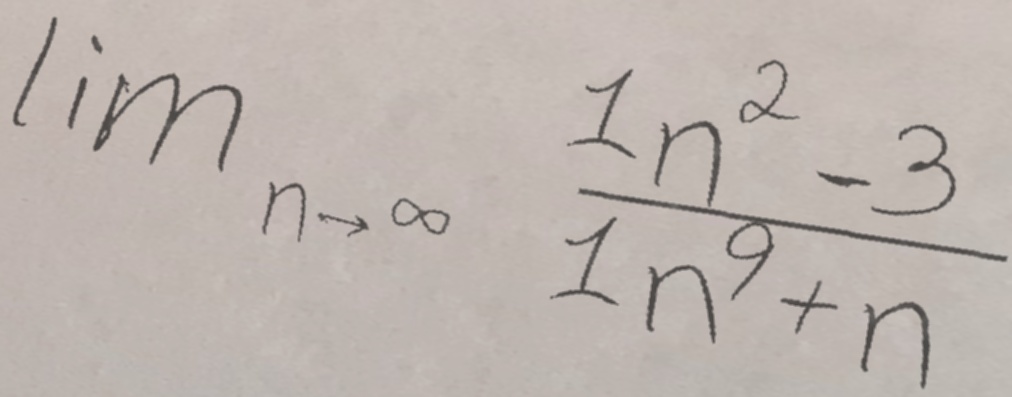 lim n→∞ (1n² - 3)/(1n⁹ + n)